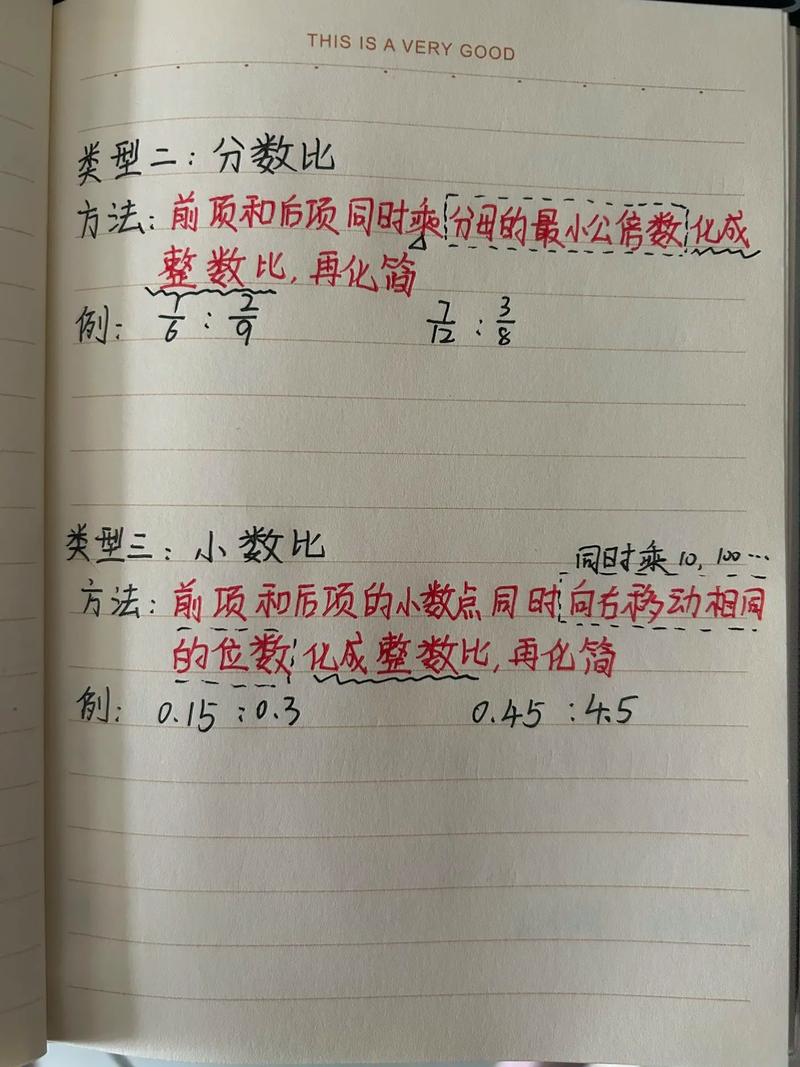 THIS IS A VERY GOOD
类型二：分数比
方法：前项和后项同时乘分母的最小公倍数化成
整数比，再化简
例：1/6 : 2/9 7/12 : 3/8
类型三：小数比
同时乘10，100…
方法：前项和后项的小数点同时向右移动相同
的位数化成整数比，再化简
例：0.15 : 0.3 0.45 : 4.5